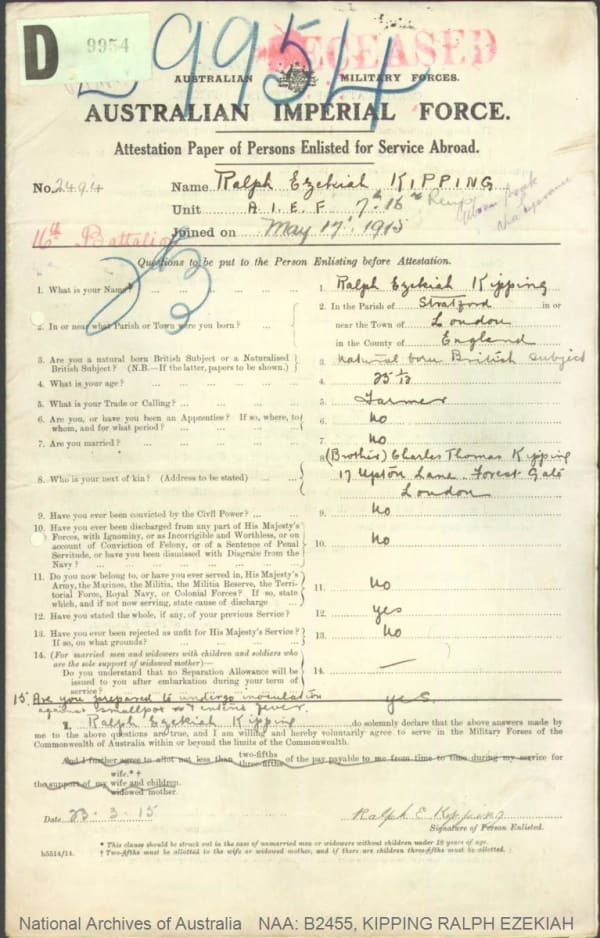 D
9954
9954
DECEASED
AUSTRALIAN MILITARY FORCES.
AUSTRALIAN IMPERIAL FORCE.
Attestation Paper of Persons Enlisted for Service Abroad.
No. 2494 Name Ralph Ezekiah KIPPING
Unit A.I.E.F 7th 16th Reinf
16th Battalion Joined on May 17. 1915
Questions to be put to the Person Enlisting before Attestation.
1. What is your Name? ... 1. Ralph Ezekiah Kipping
2. In or near what Parish or Town were you born? ... 2. In the Parish of Stratford in or
near the Town of London
in the County of England
3. Are you a natural born British Subject or a Naturalised
British Subject? (N.B.—If the latter, papers to be shown.) 3. natural born British subject
4. What is your age? ... 4. 25 1/12
5. What is your Trade or Calling? ... 5. Farmer
6. Are you, or have you been an Apprentice? If so, where, to
whom, and for what period? ... 6. No
7. Are you married? ... 7. No
8. Who is your next of kin? (Address to be stated) ... 8. (Brother) Charles Thomas Kipping
17 Upton Lane Forest Gate
London
9. Have you ever been convicted by the Civil Power? ... 9. No
10. Have you ever been discharged from any part of His Majesty's
Forces, with Ignominy, or as Incorrigible and Worthless, or on
account of Conviction of Felony, or of a Sentence of Penal
Servitude, or have you been dismissed with Disgrace from the
Navy? ... 10. No
11. Do you now belong to, or have you ever served in, His Majesty's
Army, the Marines, the Militia, the Militia Reserve, the Terri-
torial Force, Royal Navy, or Colonial Forces? If so, state
which, and if not now serving, state cause of discharge 11. No
12. Have you stated the whole, if any, of your previous Service? 12. yes
13. Have you ever been rejected as unfit for His Majesty's Service?
If so, on what grounds? 13. No
14. (For married men and widowers with children and soldiers who
are the sole support of widowed mother)—
Do you understand that no Separation Allowance will be
issued to you after embarkation during your term of
service? 14. —
15. Are you prepared to undergo inoculation
against smallpox & enteric fever. yes.
I, Ralph Ezekiah Kipping do solemnly declare that the above answers made by
me to the above questions are true, and I am willing and hereby voluntarily agree to serve in the Military Forces of the
Commonwealth of Australia within or beyond the limits of the Commonwealth.
And I further agree to allot not less than two-fifths three-fifths of the pay payable to me from time to time during my service for
the support of my wife.*† wife and children. widowed mother.
Date 23.3.15 Ralph E Kipping
Signature of Person Enlisted.
* This clause should be struck out in the case of unmarried men or widowers without children under 18 years of age.
† Two-fifths must be allotted to the wife or widowed mother, and if there are children three-fifths must be allotted.
h5514/14.
National Archives of Australia NAA: B2455, KIPPING RALPH EZEKIAH